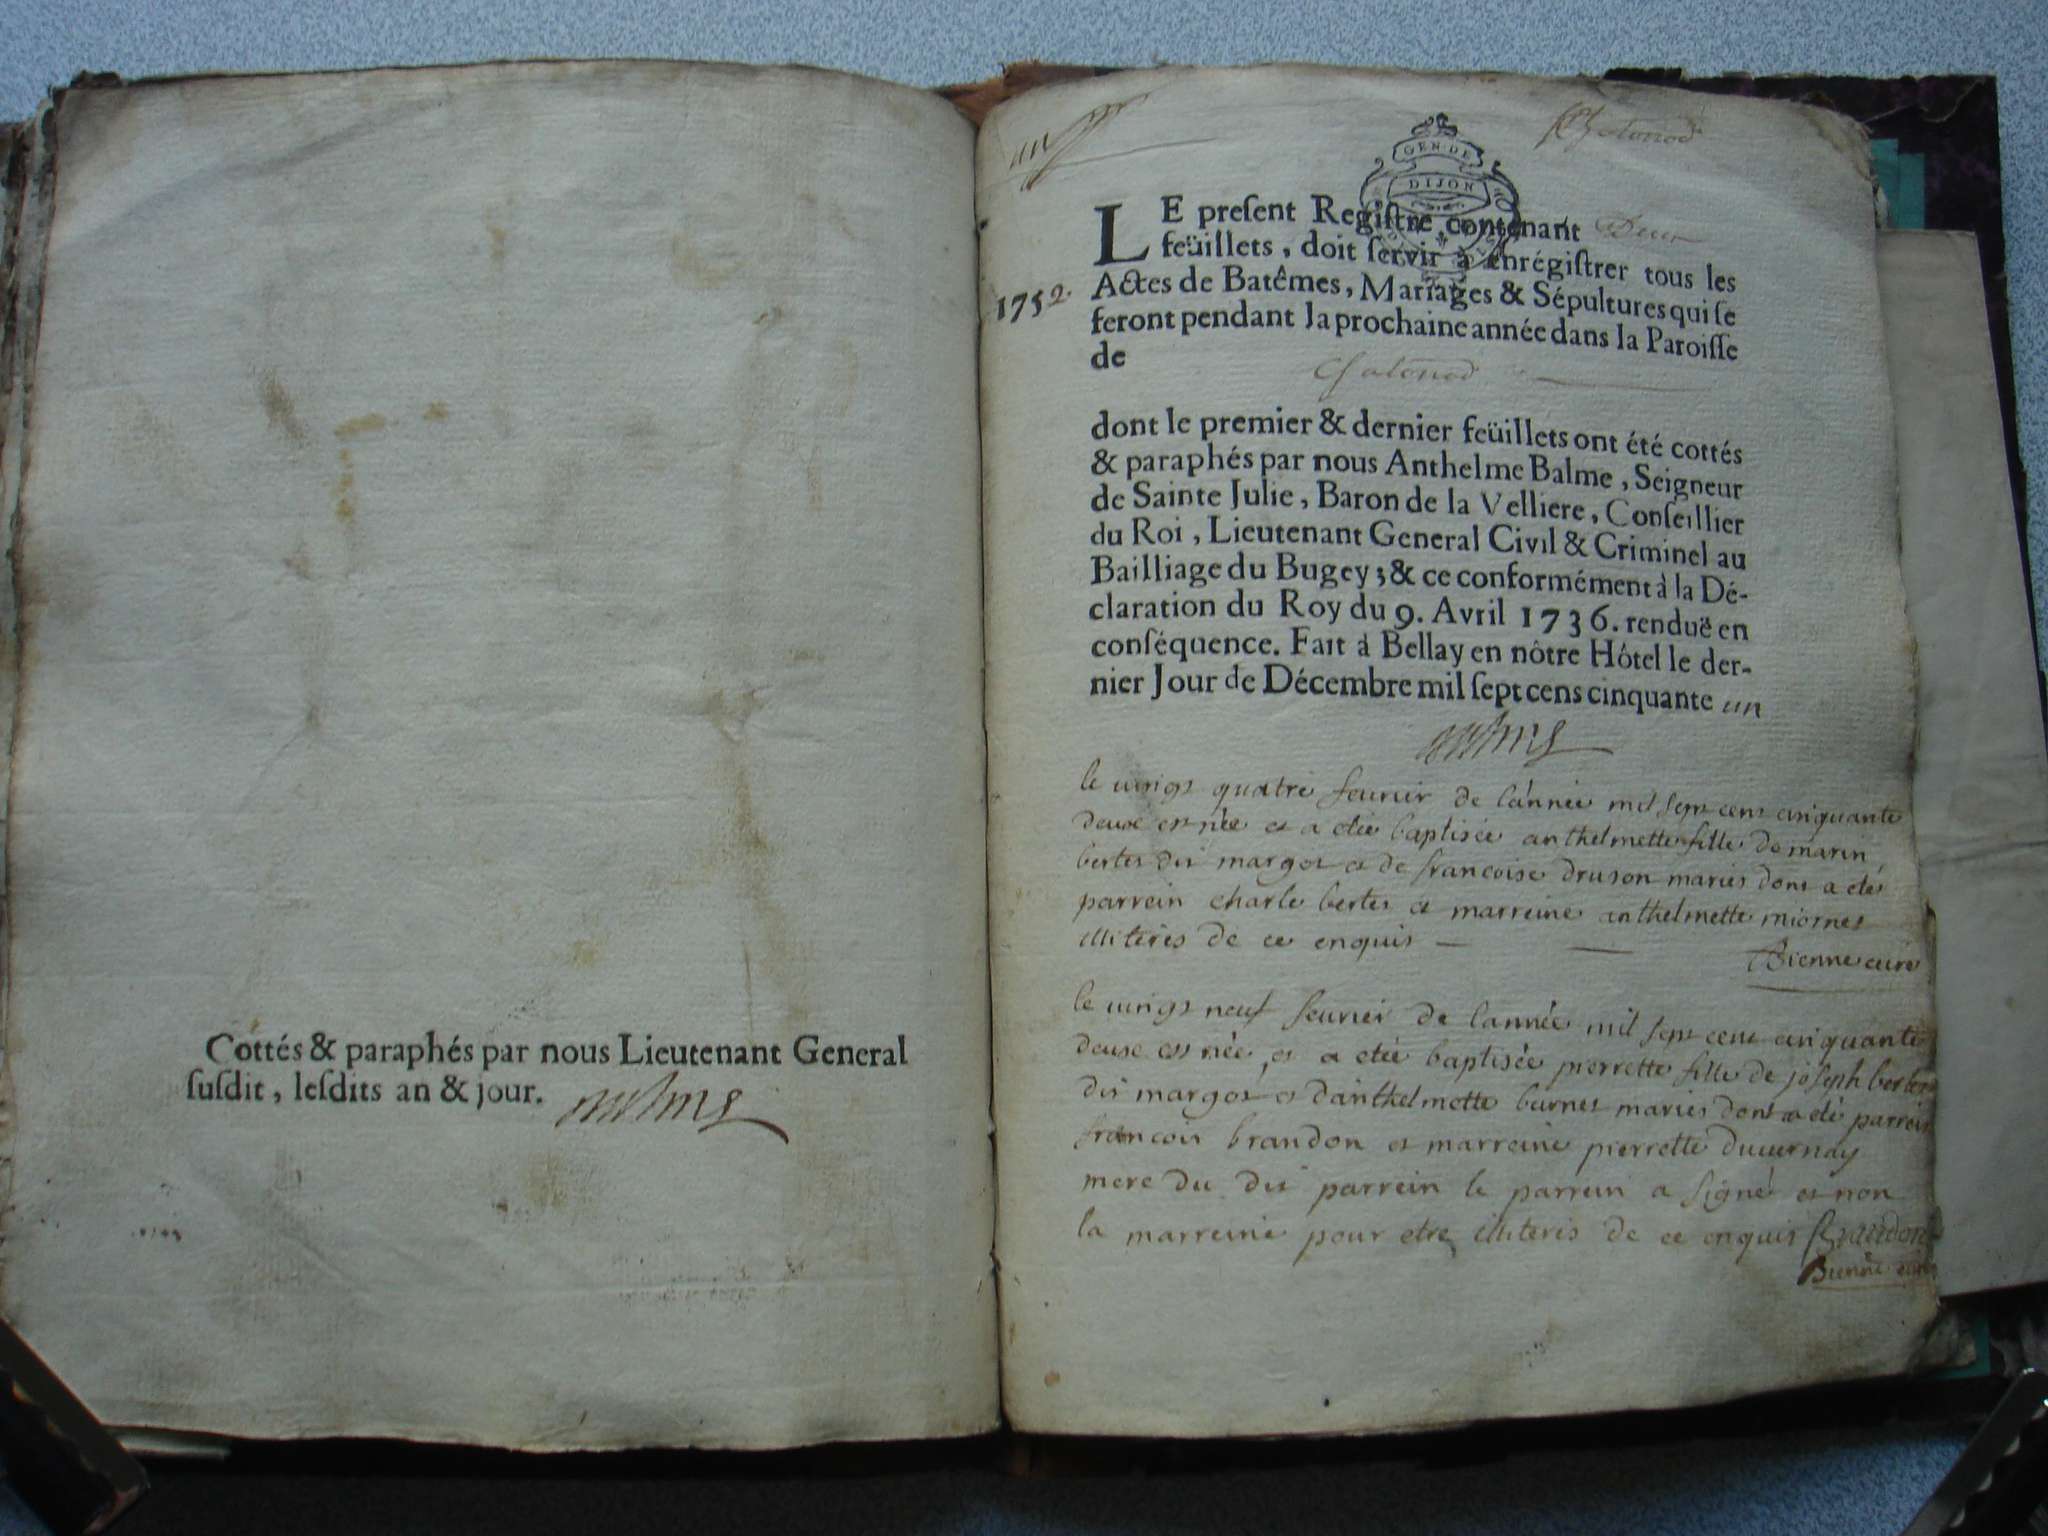 Cottés & paraphés par nous Lieutenant General
suſdit, leſdits an & jour.
un
Chatonod
GEN·DE
DIJON
LE preſent Regiſtre contenant Deux
feüillets, doit ſervir à enrégiſtrer tous les
1752.
Actes de Batêmes, Mariages & Sépultures qui ſe
feront pendant la prochaine année dans la Paroiſſe
de
Chatonod
dont le premier & dernier feüillets ont été cottés
& paraphés par nous Anthelme Balme, Seigneur
de Sainte Julie, Baron de la Velliere, Conſeillier
du Roi, Lieutenant General Civil & Criminel au
Bailliage du Bugey; & ce conformément à la Dé-
claration du Roy du 9. Avril 1736. renduë en
conſéquence. Fait à Bellay en nôtre Hôtel le der-
nier Jour de Décembre mil ſept cens cinquante un
le vingt quatre fevrier de l'année mil sept cent cinquante
deuse est née et a etée baptisée anthelmette fille de marin
bertet dit margot et de francoise druson mariés dont a etés
parrein charle bertet et marreine anthelmette miornet
illiterés de ce enquis
Bienne curé
le vingt neuf fevrier de l'année mil sept cent cinquante
deuse est née, et a etée baptisée pierrette fille de joseph bertet
dit margot et d'anthelmette burnet mariés dont a eté parrein
francois brandon et marreine pierrette duvernay
mere du dit parrein le parrein a signé et non
la marreine pour etre illiteris de ce enquis Brandon
Bienne curé